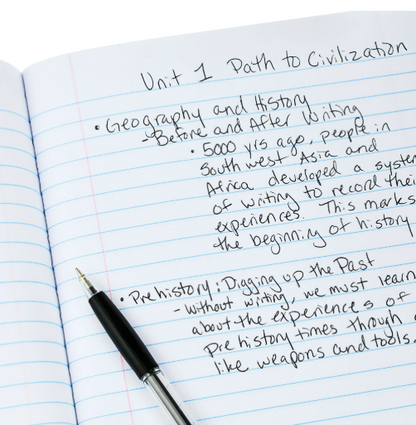 Unit 1 Path to Civilization
• Geography and History
- Before and After Writing
• 5000 yrs ago, people in
South west Asia and
Africa developed a system
of writing to record their
experiences. This marks
the beginning of history
• Prehistory: Digging up the Past
- without writing, we must learn
about the experiences of
Pre history times through
like weapons and tools.